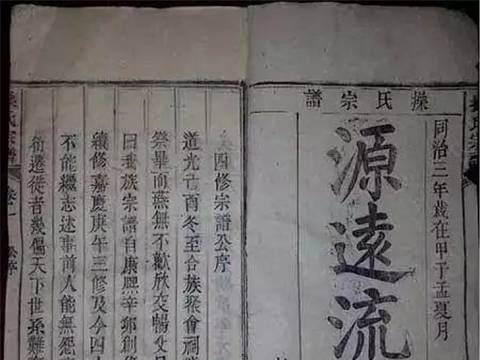 操氏宗譜
同治三年歲在甲子孟夏月
源遠流
四修宗譜公序
道光己酉冬至合族聚會祠
祭畢而燕無不歡欣交暢
曰我族宗譜自康熙辛卯創修
續修嘉慶庚午三修及今四
不能繼志述事前人能無怨
衍遷徙者幾偏天下世系難
操氏宗譜 卷一